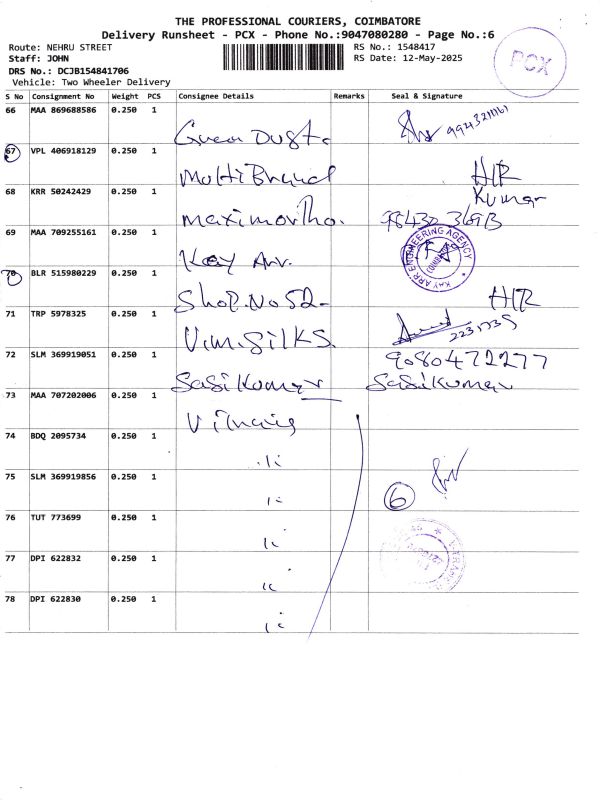 THE PROFESSIONAL COURIERS, COIMBATORE
Delivery Runsheet - PCX - Phone No.:9047080280 - Page No.:6
Route: NEHRU STREET
RS No.: 1548417
Staff: JOHN
RS Date: 12-May-2025
DRS No.: DCJB154841706
Vehicle: Two Wheeler Delivery
PCX
S No Consignment No Weight PCS Consignee Details Remarks Seal & Signature
66 MAA 869688586 0.250 1
67 VPL 406918129 0.250 1 Multi Brand H/R
68 KRR 50242429 0.250 1 Kumar
69 MAA 709255161 0.250 1 Kay Arr. KAY ARR ENGINEERING AGENCY
70 BLR 515980229 0.250 1 Shop.No 52- H/R
71 TRP 5978325 0.250 1 V.m.Silks.
72 SLM 369919051 0.250 1 Sasi Kumar 9080472277 Sasikumar
73 MAA 707202006 0.250 1
74 BDQ 2095734 0.250 1
75 SLM 369919856 0.250 1 6
76 TUT 773699 0.250 1
77 DPI 622832 0.250 1
78 DPI 622830 0.250 1